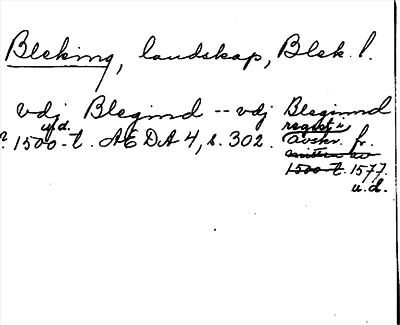 Bleking, landskap, Blek. l.
vdj Blegind -- vdj Blegind
u.d. regist i
? 1500-t. ÆDA 4, s. 302. Avskr. fr.
mitten av
1500-t. 1577.
u.d.